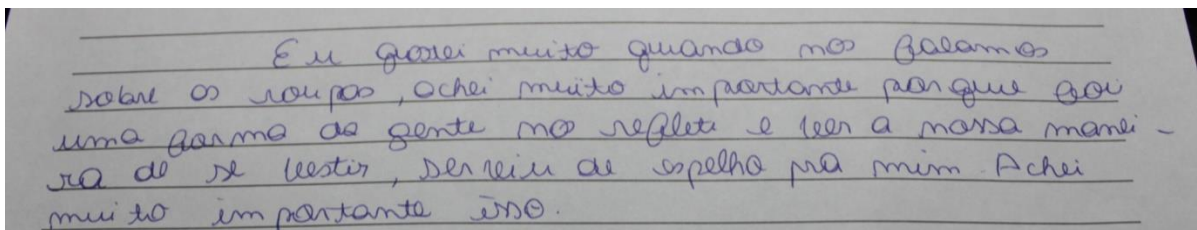 Eu gostei muito quando nos falamos
sobre as roupas, achei muito importante porque foi
uma forma da gente nos reflete e ver a nossa manei-
ra de se vestir, serviu de espelho pra mim. Achei
muito importante isso.